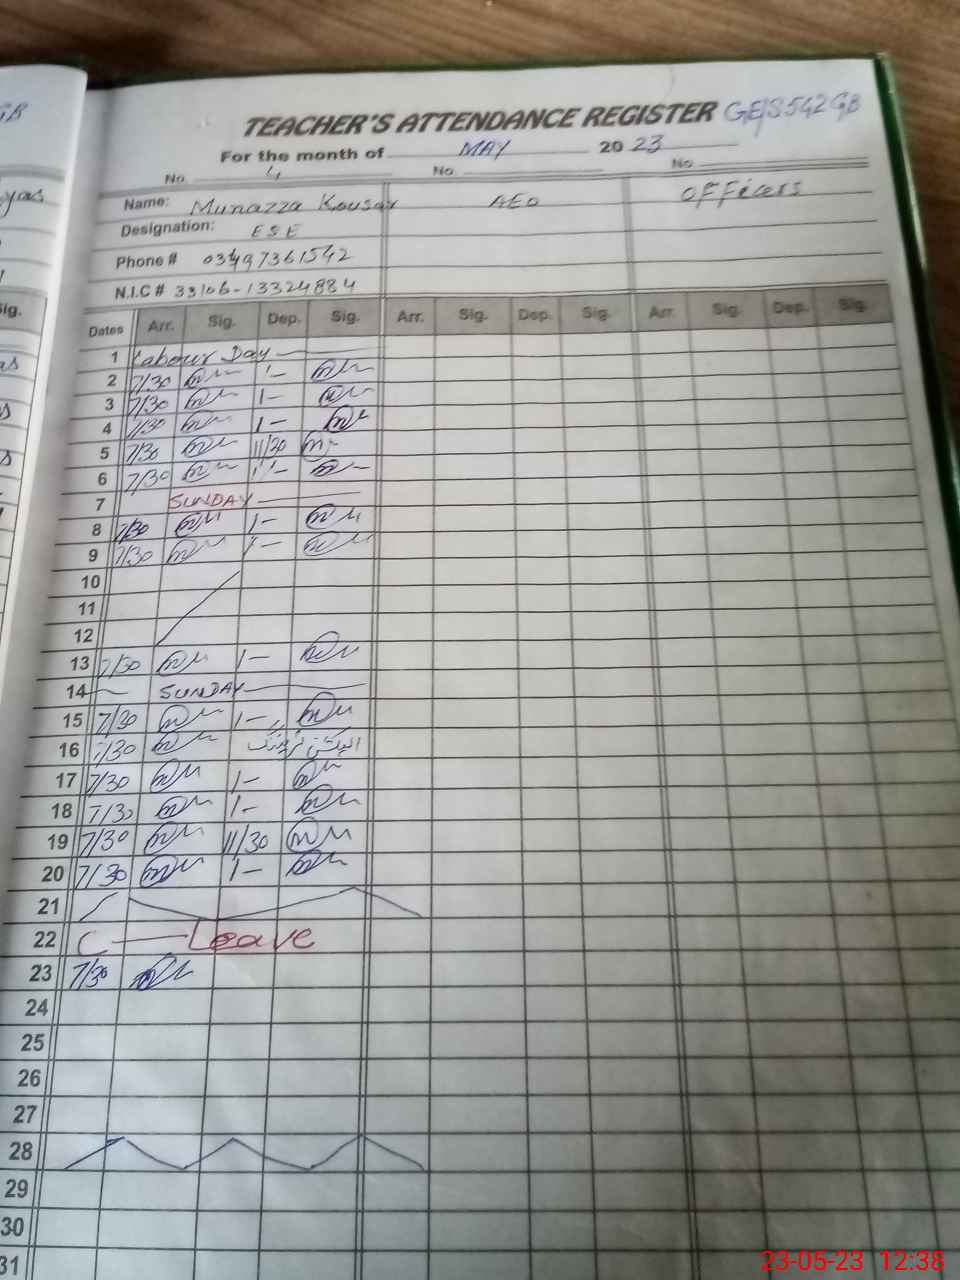 TEACHER'S ATTENDANCE REGISTER GE/S 542 GB
For the month of MAY 20 23
No. 4 No. No.
Name: Munazza Kousar AEO OFFicers
Designation: ESE
Phone # 03497361542
N.I.C # 33106-13324884
Dates Arr. Sig. Dep. Sig. Arr. Sig. Dep. Sig. Arr. Sig. Dep. Sig.
1 Labour Day
2 7/30 1-
3 7/30 1-
4 7/30 1-
5 7/30 11/30
6 7/30 1-
7 SUNDAY
8 7/30 1-
9 7/30 1-
10
11
12
13 7/30 1-
14 SUNDAY
15 7/30 1-
16 7/30 الیکشن ٹریننگ
17 7/30 1-
18 7/30 1-
19 7/30 11/30
20 7/30 1-
21
22 C Leave
23 7/30
24
25
26
27
28
29
30
31
23-05-23 12:38